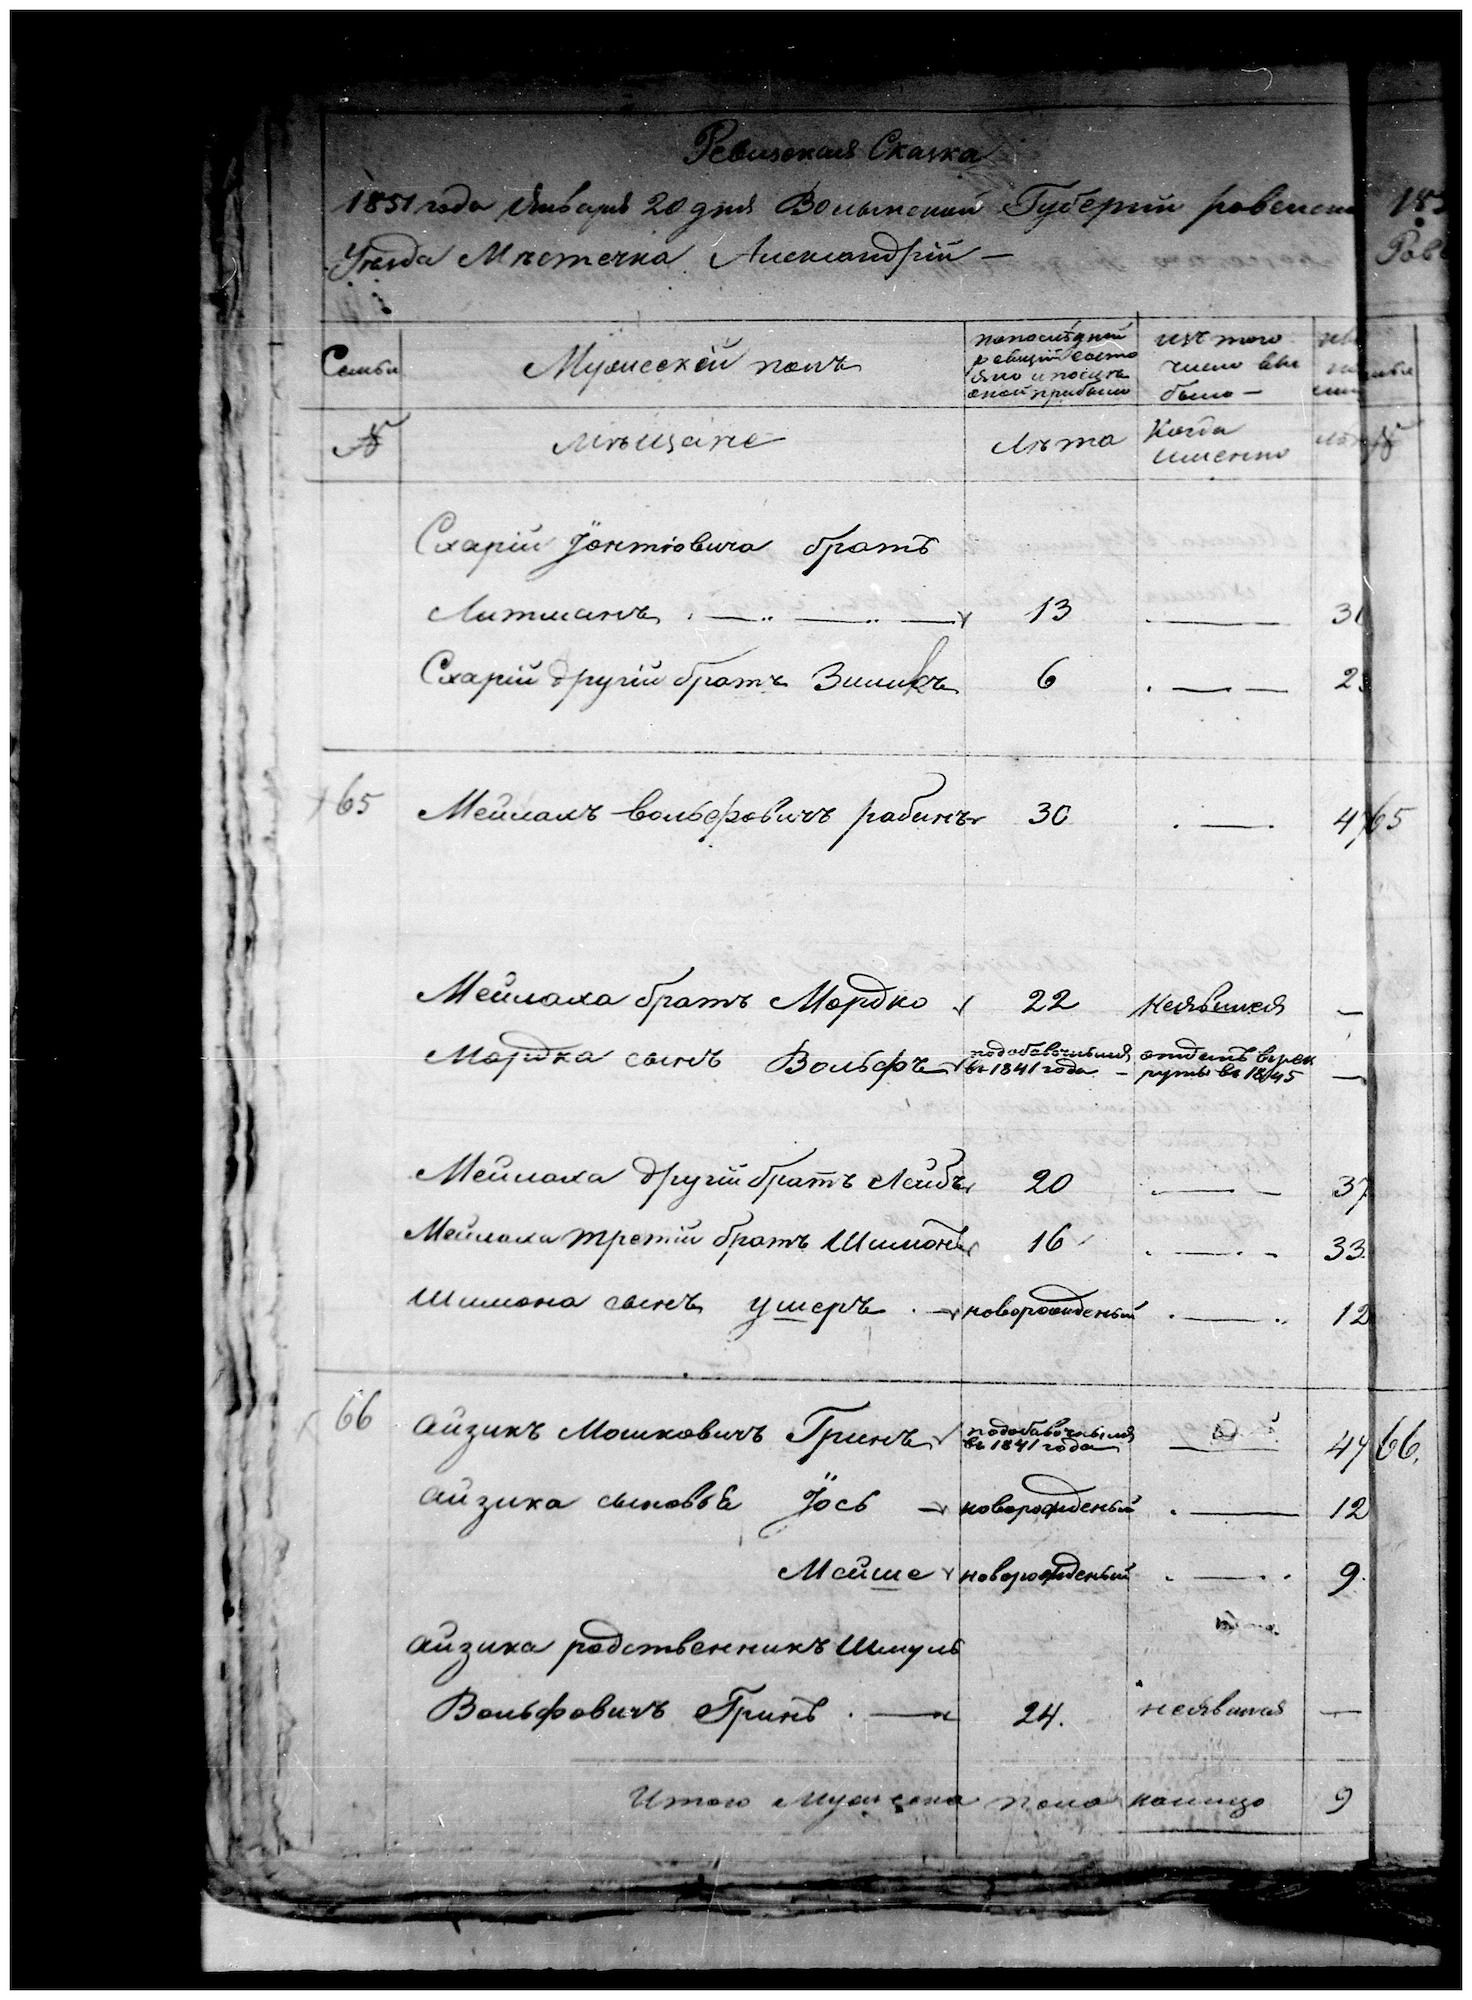 Ревизская Сказка
1851 года Января 20 дня Волынской Губернии ровенск
Уезда Мѣстечка Александрій —
Семьи
Мужескій полъ
попослѣдней ревизій состояло и послѣ оной прибыло
изъ того число выбыло —
№
Мѣщане
Лѣта
Когда именно
№
Схарій Іонтіовича братъ
Литманъ 13 31
Схарій другій братъ Зиликъ 6 2
65 Мейлахъ Вольфовичъ рабинъ 30 47 65
Мейлаха братъ Мордко 22 неявился —
Мордка сынъ Вольфъ подобавочными въ 1841 года — отданъ врекруты въ 1845 —
Мейлаха другій братъ Лейбъ 20 37
Мейлаха третій братъ Шимонъ 16 33
Шимона сынъ Ушеръ новорожденый 12
66 Айзикъ Мошковичъ Гринъ подобавочными въ 1841 года 47 66.
Айзика сыновья Іось новорожденый 12
Мейше новорожденый 9.
Айзика родственникъ Шмуль
Вольфовичъ Гринъ 24. неявился —
Итого Мужеска пола налицо 9